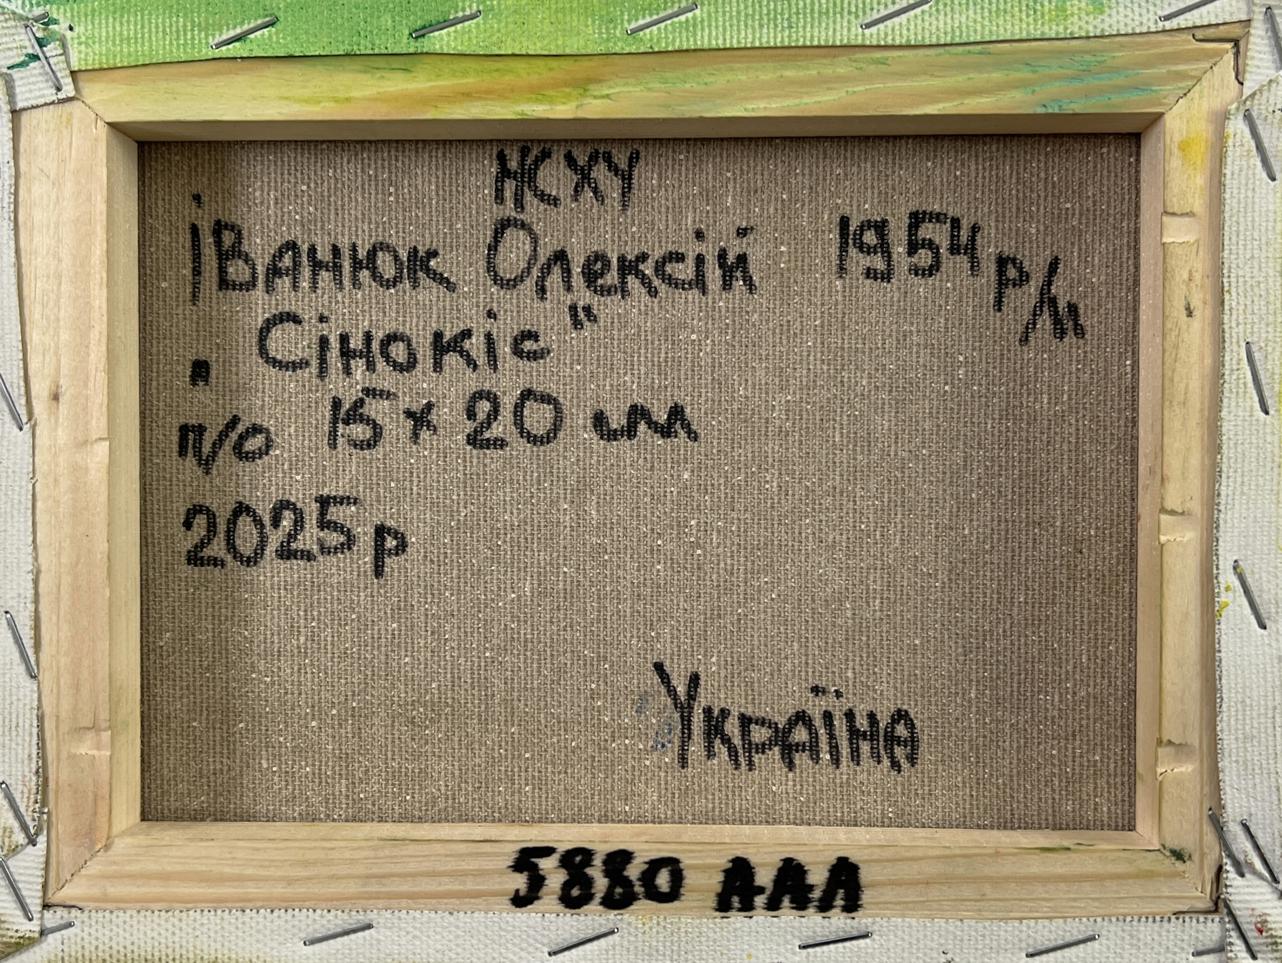 НСХУ
Іванюк Олексій 1954 р/н
„Сінокіс"
п/о 15 x 20 см
2025 р
Україна
5880 ААА